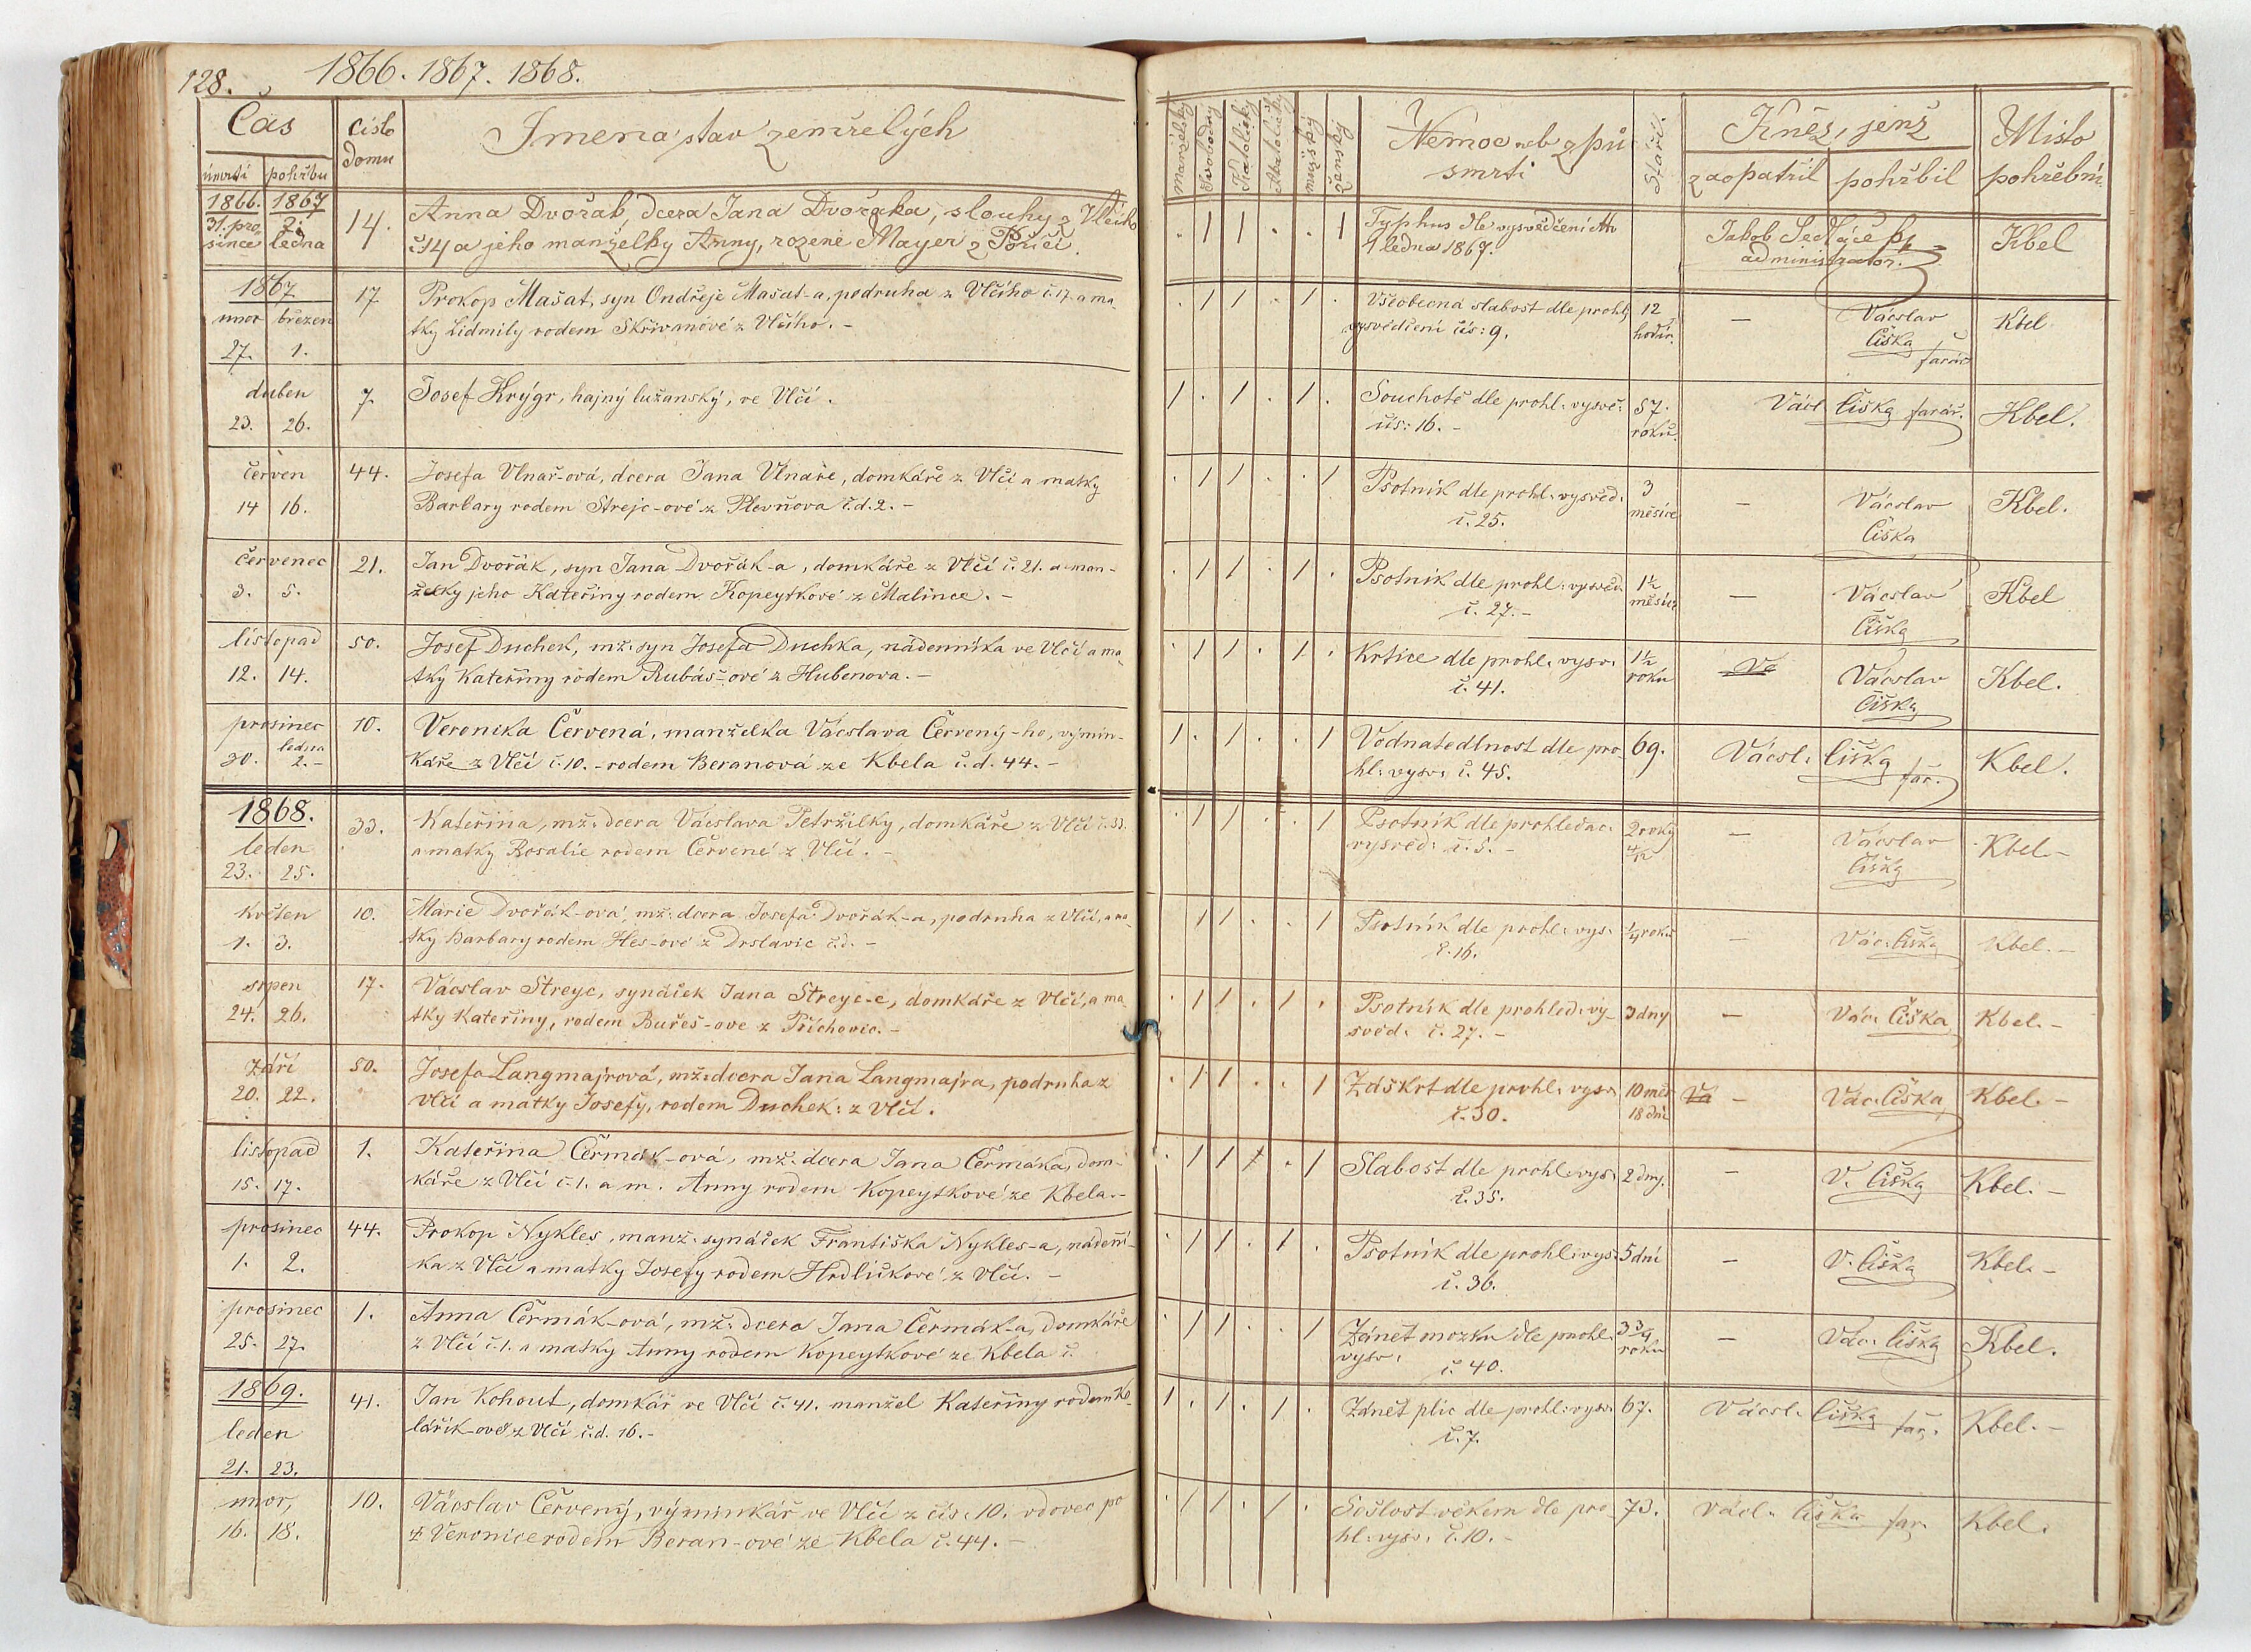 128. 1866. 1867. 1868.
Čas
úmrtí pohřbu
Číslo domu
Jmena stav zemřelých
manželský
Svobodný
Katolický
Akatolický
mužský
ženský
Nemoc neb způ
smrti
Stáří.
Kněz, jenž
zaopatřil pohřbil
Místo
pohřební
1866. 1867
31. pro 2.
since ledna
14.
Anna Dvořak, dcera Jana Dvořaka, slouhy z Vlčiho
č: 14 a jeho manželky Anny, rozené Mayer z Poříčí.
. 1 1 . . 1
Typhus dle vysvědčení
1 ledna 1867.
Jakob
administrator.
Kbel
1867
unor březen
27. 1.
17
Prokop Mašat, syn Ondřeje Mašat-a, podruha z Vlčího č. 17. a ma-
tky Lidmily rodem Skřivanové z Vlčího. -
. 1 1 . 1 .
Všeobecná slabost dle prohl:
vysvědčení čís: 9.
12
hodin.
—
Václav
Čiška
farář
Kbel
duben
23. 26.
7.
Josef Krýgr, hajný lužanský, ve Vlčí.
1 . 1 . 1 .
Souchotě dle prohl: vysvě:
čís: 16. -
57.
roků.
Václ Čiška farář.
Kbel.
červen
14 16.
44.
Josefa Vlnař-ová, dcera Jana Vlnaře, domkáře z Vlčí a matky
Barbary rodem Strejc-ové z Plevňova č.d. 2. -
. 1 1 . . 1
Psotník dle prohl. vysvěd.
č. 25.
3
měsíce
—
Václav
Čiška
Kbel.
červenec
3. 5.
21.
Jan Dvořák, syn Jana Dvořák-a, domkáře z Vlčí č. 21. a man-
želky jeho Kateřiny rodem Kopeytkové z Malince. -
. 1 1 . 1 .
Psotník dle prohl: vysvěd.
č. 27. -
1½
měsíce
—
Václav
Čiška
Kbel
listopad
12. 14.
50.
Josef Duchek, mž. syn Josefa Duchka, nádenníka ve Vlčí a ma-
tky Kateřiny rodem Rubáš-ové z Hubenova. -
. 1 1 . 1 .
Krtice dle prohl. vysv.
č. 41.
1½
roku
Vá
Václav
Čiška
Kbel.
prosinec
ledna
30. 2. -
10.
Veronika Červená, manželka Václava Červený-ho, výmin-
káře z Vlčí č. 10. - rodem Beranová ze Kbela č.d. 44. -
1 . 1 . . 1
Vodnatedlnost dle pro-
hl: vysv. č. 45.
69.
Václ. Čiška far.
Kbel.
1868.
leden
23. 25.
33.
Kateřina, mž. dcera Václava Petržilky, domkáře z Vlčí č. 33.
a matky Rosalie rodem Červené z Vlčí. -
. 1 1 . . 1
Psotník dle prohledac.
vysvěd: č: 5. -
2 roky
—
Václav
Čiška
Kbel. -
květen
1. 3.
10.
Marie Dvořák-ová, mž. dcera Josefa Dvořák-a, podruha z Vlčí, a ma-
tky Barbary rodem Hes-ové z Drslavic č.d. -
1 1 . . 1
Psotník dle prohl. vys.
č. 16.
¼ roku
—
Vác. Čiška
Kbel. -
srpen
24. 26.
17.
Václav Streyc, synáček Jana Streyc-e, domkáře z Vlčí, a ma-
tky Kateřiny, rodem Bureš-ove z Přichovic. -
. 1 1 . 1 .
Psotník dle prohled. vy-
svěd. č. 27. -
3 dny
—
Vác. Čiška
Kbel. -
Září
20. 22.
50.
Josefa Langmajrová, mž: dcera Jana Langmajra, podruha z
Vlčí a matky Josefy, rodem Duchek: z Vlčí.
. 1 1 . . 1
Záskrt dle prohl. vysv.
č. 30.
10 měs
18 dní
Vá -
Vác. Čiška
Kbel. -
listopad
15. 17.
1.
Kateřina Čermák-ová, mž. dcera Jana Čermáka, dom-
káře z Vlčí č. 1. a m. Anny rodem Kopeytkové ze Kbela. -
. 1 1 . 1
Slabost dle prohl. vys.
č. 35.
2 dny.
—
V. Čiška
Kbel. -
prosinec
1. 2.
44.
Prokop Nykles, manž. synáček Františka Nykles-a, nádení-
ka z Vlčí a matky Josefy rodem Hrdličkové z Vlčí. -
. 1 1 . 1 .
Psotník dle prohl: vys.
č. 36.
5 dní
—
V. Čiška
Kbel. -
prosinec
25. 27.
1.
Anna Čermák-ová, mž. dcera Jana Čermák-a, domkáře
z Vlčí č. 1. a matky Anny rodem Kopeytkové ze Kbela č.
. 1 1 . . 1
Zánět mozku dle prohl.
vysv.
č. 40.
3 ¾
roku
—
Vác. Čiška
Kbel.
1869.
leden
21. 23.
41.
Jan Kohout, domkář ve Vlčí č. 41. manžel Kateřiny rodem Ko-
lářík-ové z Vlčí č.d. 16. -
1 . 1 . 1 .
Zánět plic dle prohl: vysv.
č. 7.
67.
Václ. Čiška far.
Kbel. -
unor,
16. 18.
10.
Václav Červený, výminkář ve Vlčí z čís. 10. vdovec po
Veronice rodem Beran-ové ze Kbela č. 44. -
. 1 1 . 1 .
Sešlost věkem dle pro-
hl. vysv. č. 10. -
73.
Václ. Čiška far.
Kbel.